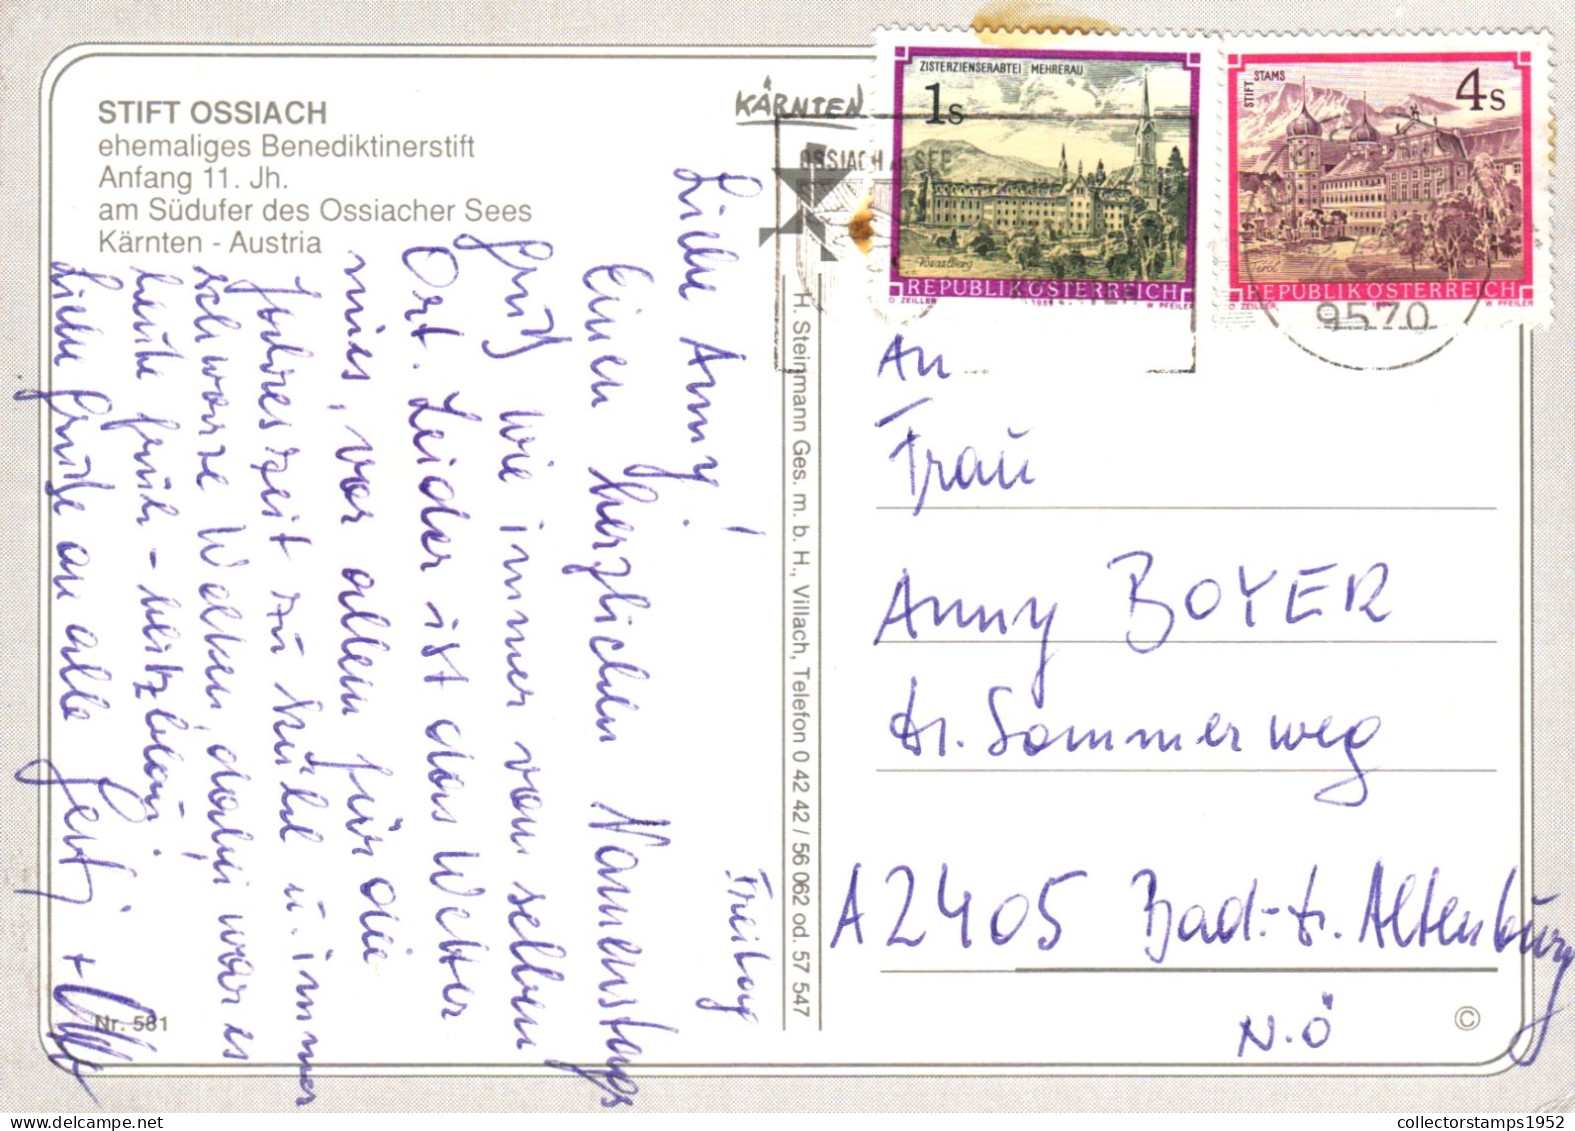 STIFT OSSIACH
ehemaliges Benediktinerstift
Anfang 11. Jh.
am Südufer des Ossiacher Sees
Kärnten - Austria
KÄRNTEN
OSSIACH SEE
ZISTERZIENSERABTEI MEHRERAU
1s
Vorarlberg
REPUBLIK ÖSTERREICH
O. ZEILLER
W. PFEILER
STIFT STAMS
4s
Tirol
REPUBLIK ÖSTERREICH
O. ZEILLER
W. PFEILER
9570
Freitag
Liebe Anny!
Einen herzlichen Namenstags
gruß wie immer vom selben
Ort. Leider ist das Wetter
mies, vor allem für die
Jahreszeit zu kühl u. immer
schwarze Wolken, dabei war es
heute früh
Liebe Grüße an alle
H. Steinmann Ges. m. b. H., Villach, Telefon 0 42 42 / 56 062 od. 57 547
An
Frau
Anny BOYER
Dr. Sommerweg
A 2405 Bad-Dt. Altenburg
N.Ö
Nr. 581
©
collectorstamps1952